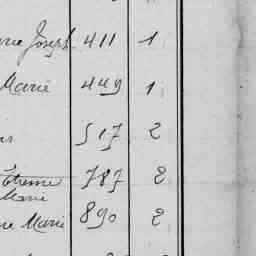 Joseph 411 1
Marie 449 1
517 2
Etienne 787 2
Marie
Marie 890 2